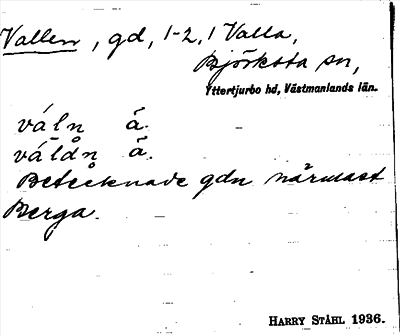 Vallen, gd, 1-2, i Valla,
Björksta sn,
Yttertjurbo hd, Västmanlands län.
váln ä.
våldn ä.
Betecknade gdn närmast
Berga.
HARRY STÅHL 1936.